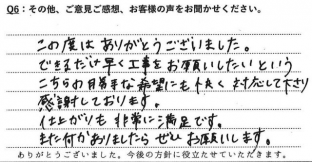 Q6：その他、ご意見ご感想、お客様の声をお聞かせください。
この度はありがとうございました。
できるだけ早く工事をお願いしたいという
こちらの勝手な希望にも快く対応して下さり
感謝しております。
仕上がりも非常に満足です。
また何かありましたらぜひお願いします。
ありがとうございました。今後の方針に役立たせていただきます。